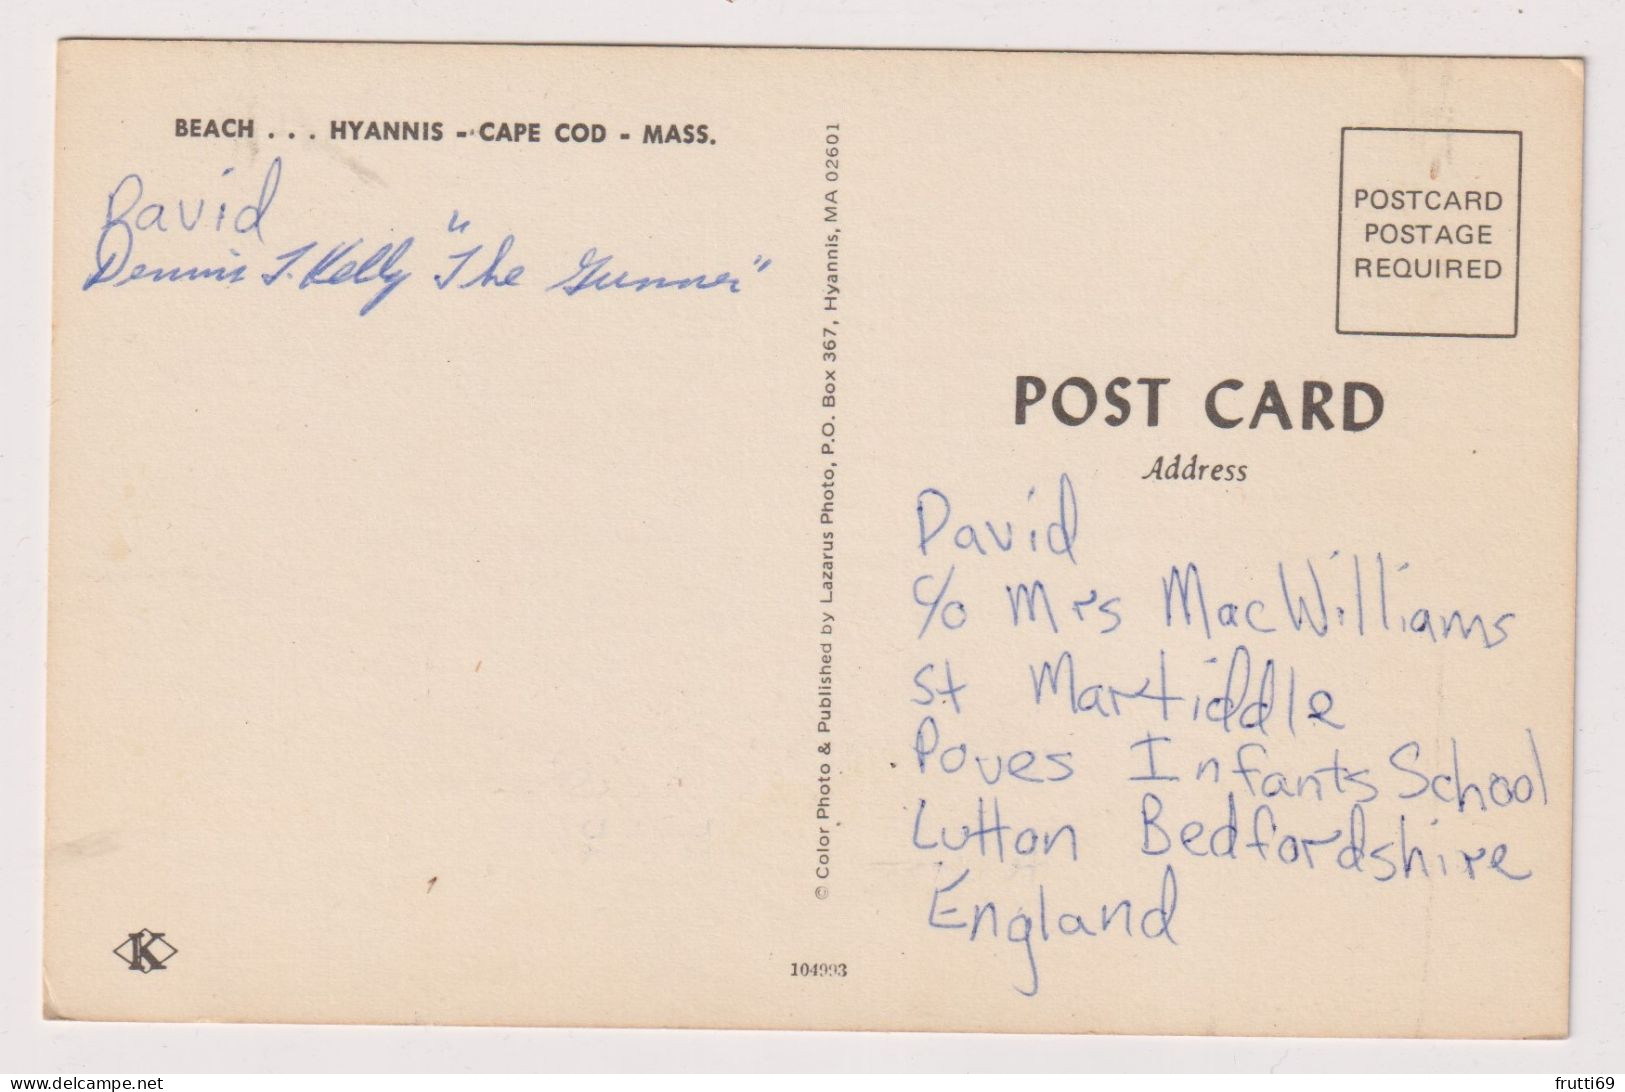 BEACH . . . HYANNIS - CAPE COD - MASS.
David
Dennis J. Kelly "The Gunner"
© Color Photo & Published by Lazarus Photo, P.O. Box 367, Hyannis, MA 02601
POSTCARD
POSTAGE
REQUIRED
POST CARD
Address
David
c/o Mrs MacWilliams
St Martiddle
Poves Infants School
Lutton Bedfordshire
England
K
104993
frutti69